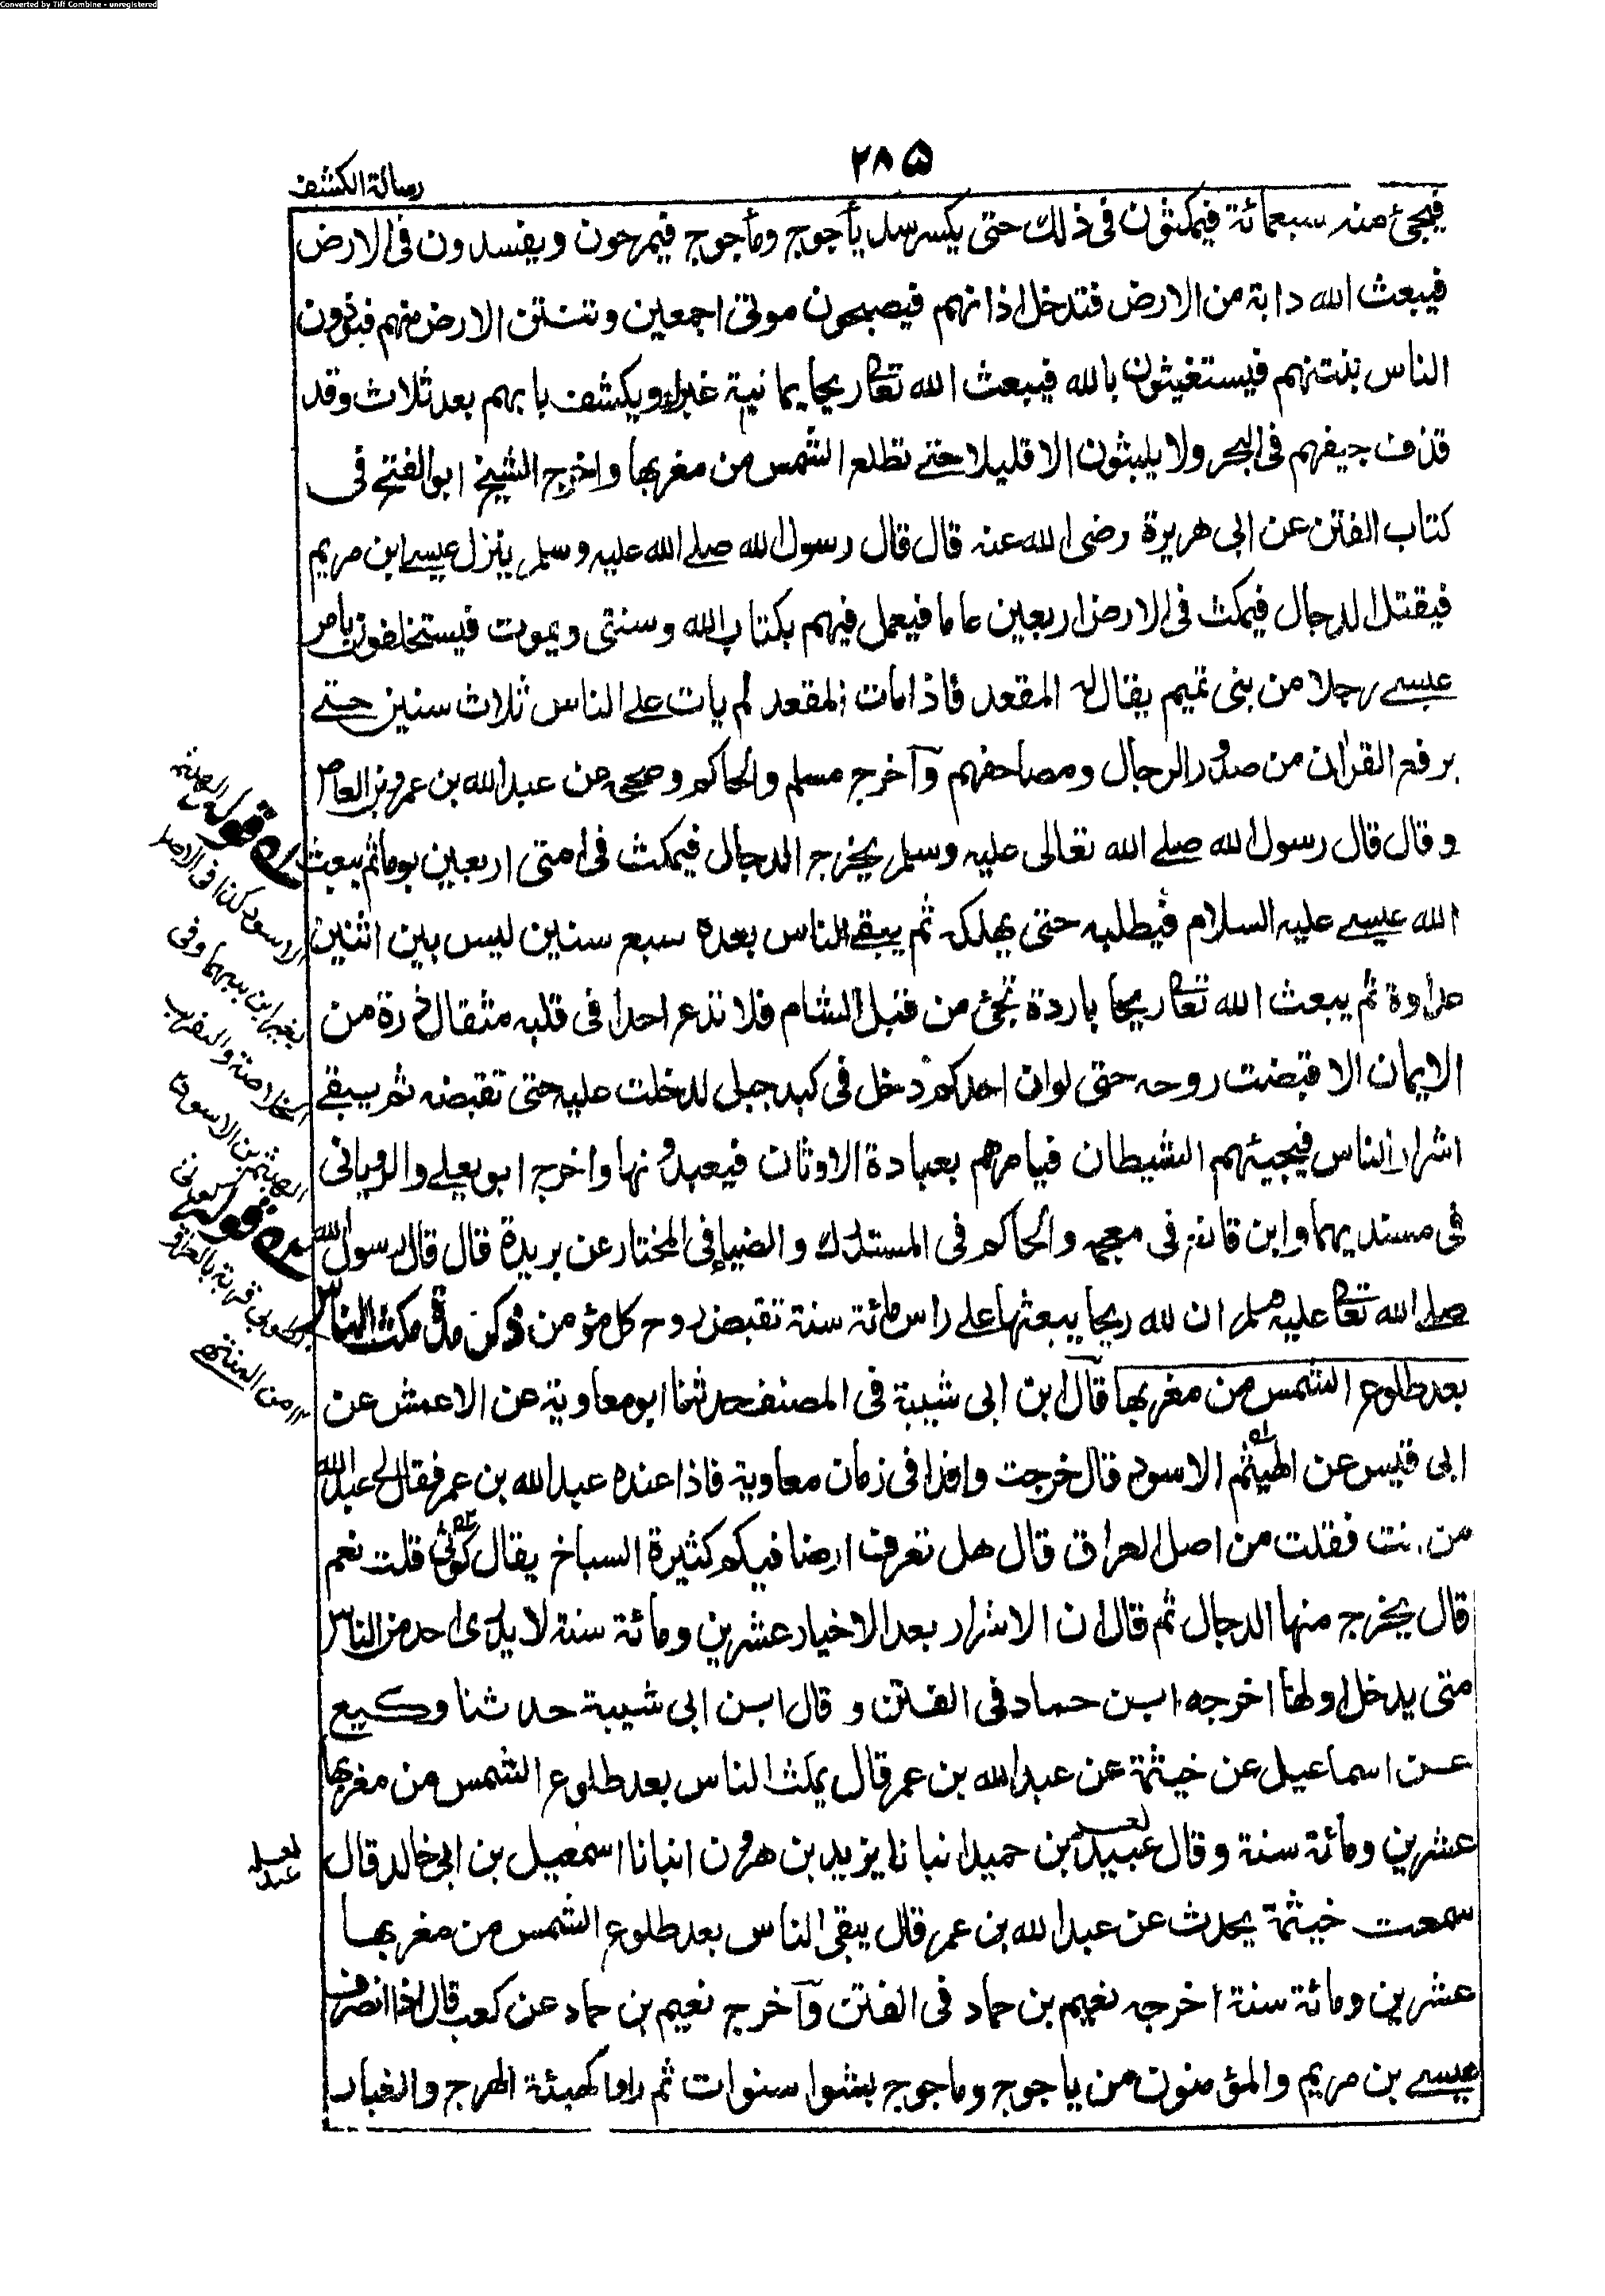 Converted by Tiff Combine - unregistered
۲۸۵
رسالة الكشف
فيجئ منه سبعمائة فيمكثون فى ذلك حتى يكسر سد يأجوج ومأجوج فيمرحون ويفسدون فى الارض
فيبعث الله دابة من الارض فتدخل اذانهم فيصبحون موتى اجمعين وتنتن الارض منهم فيؤذون
الناس بنتنهم فيستغيثون بالله فيبعث الله تعالى ريحا يمانية غبراء ويكشف ما بهم بعد ثلاث وقد
قذف جيفهم فى البحر ولا يلبثون الا قليلا حتى تطلع الشمس من مغربها واخرج الشيخ ابو الفتح فى
كتاب الفتن عن ابى هريرة رضى الله عنه قال قال رسول الله صلى الله عليه وسلم ينزل عيسى ابن مريم
فيقتل الدجال فيمكث فى الارض اربعين عاما فيعمل فيهم بكتاب الله وسنتى ويموت فيستخلفون بامر
عيسى رجلا من بنى تميم يقال له المقعد فاذا مات المقعد لم يات على الناس ثلاث سنين حتى
يرفع القران من صدور الرجال ومصاحفهم وآخرج مسلم والحاكم وصححه عن عبد الله بن عمرو بن العاص
وقال قال رسول الله صلى الله تعالى عليه وسلم يخرج الدجال فيمكث فى امتى اربعين يوما ثم يبعث
الله عيسى عليه السلام فيطلبه حتى يهلكه ثم يبقى الناس بعده سبع سنين ليس بين اثنين
عداوة ثم يبعث الله تعالى ريحا باردة تجئ من قبل الشام فلا تدع احدا فى قلبه مثقال ذرة من
الايمان الا قبضت روحه حتى لو ان احدكم دخل فى كبد جبل لدخلت عليه حتى تقبضه ثم يبقى
اشرار الناس فيجيئهم الشيطان فيامرهم بعبادة الاوثان فيعبدونها واخرج ابو يعلى والرويانى
فى مسنديهما وابن قانع فى معجمه والحاكم فى المستدرك والضياء فى المختار عن بريدة قال قال رسول الله
صلى الله تعالى عليه وسلم ان لله ريحا يبعثها على راس مائة سنة تقبض روح كل مؤمن ذكر مدة مكث الناس
بعد طلوع الشمس من مغربها قال ابن ابى شيبة فى المصنف حدثنا ابو معاوية عن الاعمش عن
ابى قيس عن الهيثم الاسود قال خرجت وافدا فى زمان معاوية فاذا عنده عبد الله بن عمر فقال لى عبد الله
من انت فقلت من اهل العراق قال هل تعرف ارضا فيكم كثيرة السباخ يقال كوثى قلت نعم
قال يخرج منها الدجال ثم قال ان الاشرار بعد الاخيار عشرين ومائة سنة لا يدرى احد من الناس
متى يدخل اولها اخرجه ابن حماد فى الفتن و قال ابن ابى شيبة حدثنا وكيع
عن اسماعيل عن خيثمة عن عبد الله بن عمر قال يمكث الناس بعد طلوع الشمس من مغربها
عشرين ومائة سنة وقال عبيد بن حميد انبانا يزيد بن هرون انبانا اسمعيل بن ابى خالد قال
سمعت خيثمة يحدث عن عبد الله بن عمر قال يبقى الناس بعد طلوع الشمس من مغربها
عشرين ومائة سنة اخرجه نعيم بن حماد فى الفتن وآخرج نعيم بن حماد عن كعب قال اذا انصرف
عيسى بن مريم والمؤمنون من ياجوج وماجوج لبثوا سنوات ثم راوا كهيئة الهرج والغبار
قوله الهيثم
الاسود كذا فى الاصل
بغير ابن بينهما وفى
الخلاصة والتقريب
الهيثم بن الاسود
قوله كوثى
كطوبى قرية بالعراق
من المنتهى
لعله
عبد